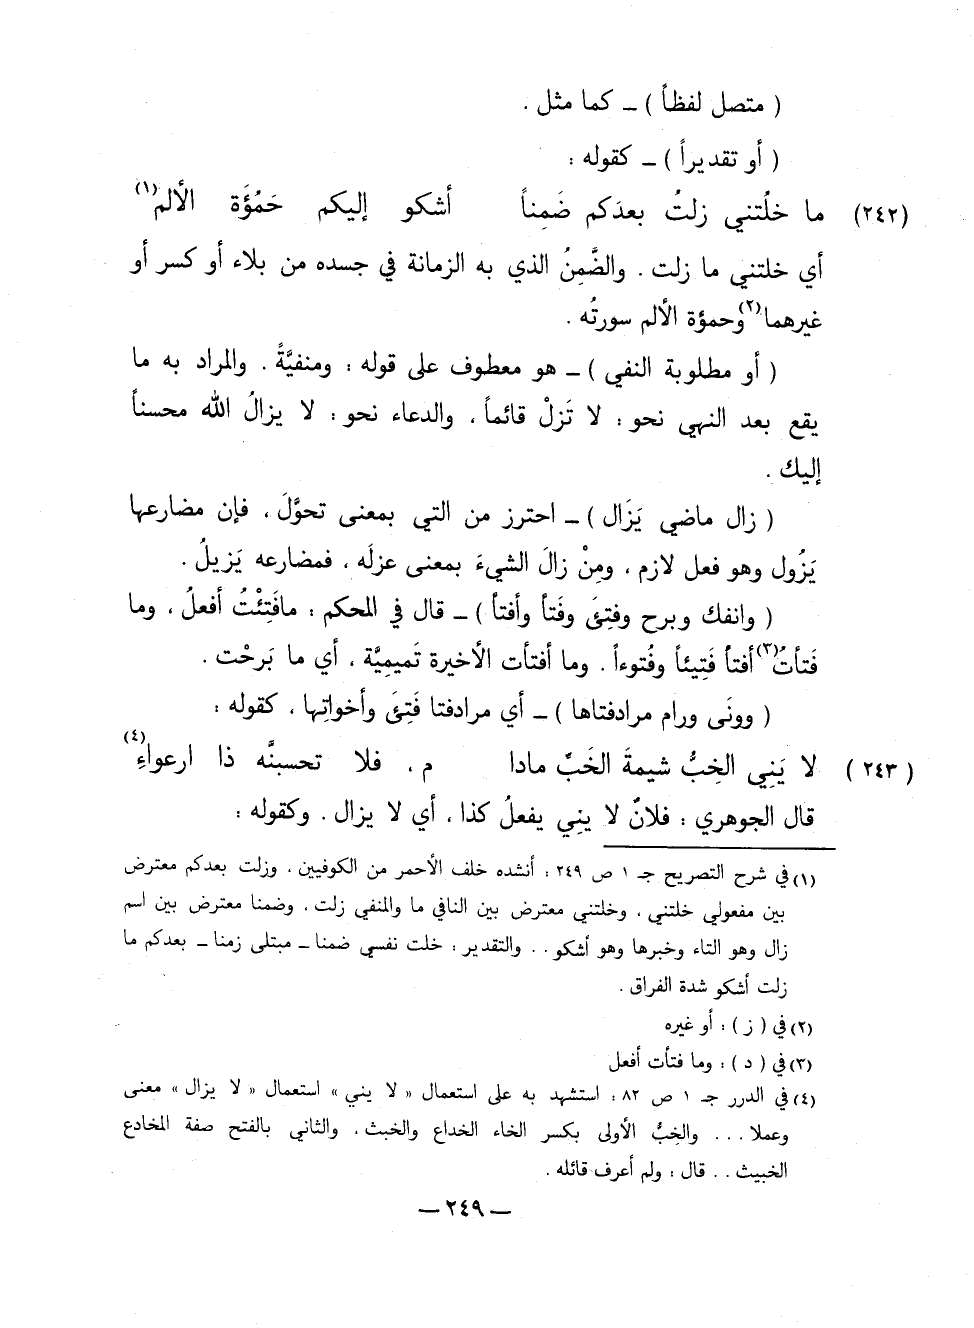 ( متصل لفظاً ) ــ كما مثل .
( أو تقديراً ) ــ كقوله :
(٢٤٢) ما خلْتني زلتُ بعدَكم ضَمِناً أشكو إليكم حَمُؤَة الألم(١)
أي خلتني ما زلت . والضَّمِنُ الذي به الزمانة في جسده من بلاء أو كسر أو
غيرهما(٢)وحمؤة الألم سورتُه .
( أو مطلوبة النفي ) ــ هو معطوف على قوله : ومنفيَّةً . والمراد به ما
يقع بعد النهي نحو : لا تَزلْ قائماً ، والدعاء نحو : لا يزالُ الله محسناً
إليك .
( زال ماضي يَزَال ) ــ احترز من التي بمعنى تحوَّلَ ، فإن مضارعها
يَزُول وهو فعل لازم ، ومِنْ زالَ الشيءَ بمعنى عزلَه ، فمضارعه يَزيلُ .
( وانفك وبرح وفتِئَ وفَتأ وأفتأ ) ــ قال في المحكم : مافَتِئْتُ أفعلُ ، وما
فَتأتُ(٣)أفتأ فَتِيئاً وفُتوءاً . وما أفتأت الأخيرة تَميمِيَّة ، أي ما بَرحْت .
( وونَى ورام مرادفتاها ) ــ أي مرادفتا فَتِئَ وأخواتِها ، كقوله :
(٢٤٣ ) لا يَنِي الخِبُّ شيمةَ الخَبِّ مادا م ، فلا تحسبنَّه ذا ارعواءِ(٤)
قال الجوهري : فلانٌ لا يني يفعلُ كذا ، أي لا يزال . وكقوله :
(١) في شرح التصريح جـ ١ ص ٢٤٩ : أنشده خلف الأحمر من الكوفيين . وزلت بعدكم معترض
بين مفعولي خلتني ، وخلتني معترض بين النافي ما والمنفي زلت ، وضمنا معترض بين اسم
زال وهو التاء وخبرها وهو أشكو . . والتقدير : خلت نفسي ضمنا ــ مبتلى زمنا ــ بعدكم ما
زلت أشكو شدة الفراق .
(٢) في ( ز ) : أو غيره
(٣) في ( د ) : وما فتأت أفعل
(٤) في الدرر جـ ١ ص ٨٢ : استشهد به على استعمال « لا يني » استعمال « لا يزال » معنى
وعملا . . . والخِبُّ الأولى بكسر الخاء الخداع والخبث . والثاني بالفتح صفة المخادع
الخبيث . . قال : ولم أعرف قائله .
ــ ٢٤٩ ــ